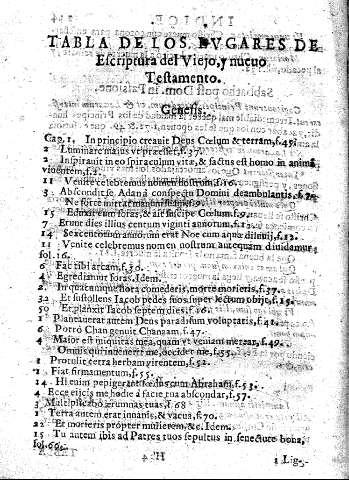 TABLA DE LOS LVGARES DE
Escriptura del Viejo, y nueuo
Testamento.
Genesis.
Cap. 1. In principio creauit Deus Cœlum & terram, f.45.
2 Luminare maius vt præesset, f.37.
2 Inspirauit in eo spiraculum vitæ, & factus est homo in animā
viuentem, f.2.
11 Venite celebremus nomen nostrum, f.16.
3 Abscondit se Adam à conspectu Domini deambulantis, f.
Ne forte mittat manum suam, f.9.
15 Educ eum foras, & ait suscipe Cœlum, f.9.
7 Erant dies illius centum viginti annorum, f.12.
14 Sexcentesimo anno
11 Venite celebremus nomen nostrum antequam diuidamur,
fol. 16.
6 Fac tibi arcam, f.30.
4 Egrediamur foras, Idem.
2 In quacunque hora comederis, morte morieris, f.37.
32 Et sustollens Iacob pedes suos super lectum obijt, f.15.
50 Et planxit Iacob septem dies, f.16.
1 Plantauerat autem Deus paradisum voluptatis, f.42.
6 Porrò Chan genuit Chanaam, f.47.
4 Maior est iniquitas mea, quam vt veniam merear, f.49.
Omnis qui inuenerit me, occidet me, f.55.
1 Protulit terra herbam virentem, f.52.
1 Fiat firmamentum, f.55.
14 Hi enim pepigerant fœdus cum Abraham, f.53.
4 Ecce eijcis me hodie à facie tua abscondar, f.57.
3 Multiplicabo ærumnas tuas, f.68
1 Terra autem erat innanis, & vacua, f.70.
22 Et morieris propter mulierem, &c. Idem.
15 Tu autem ibis ad Patres tuos sepultus in senectute bona,
fol. 60.
1 Lig-